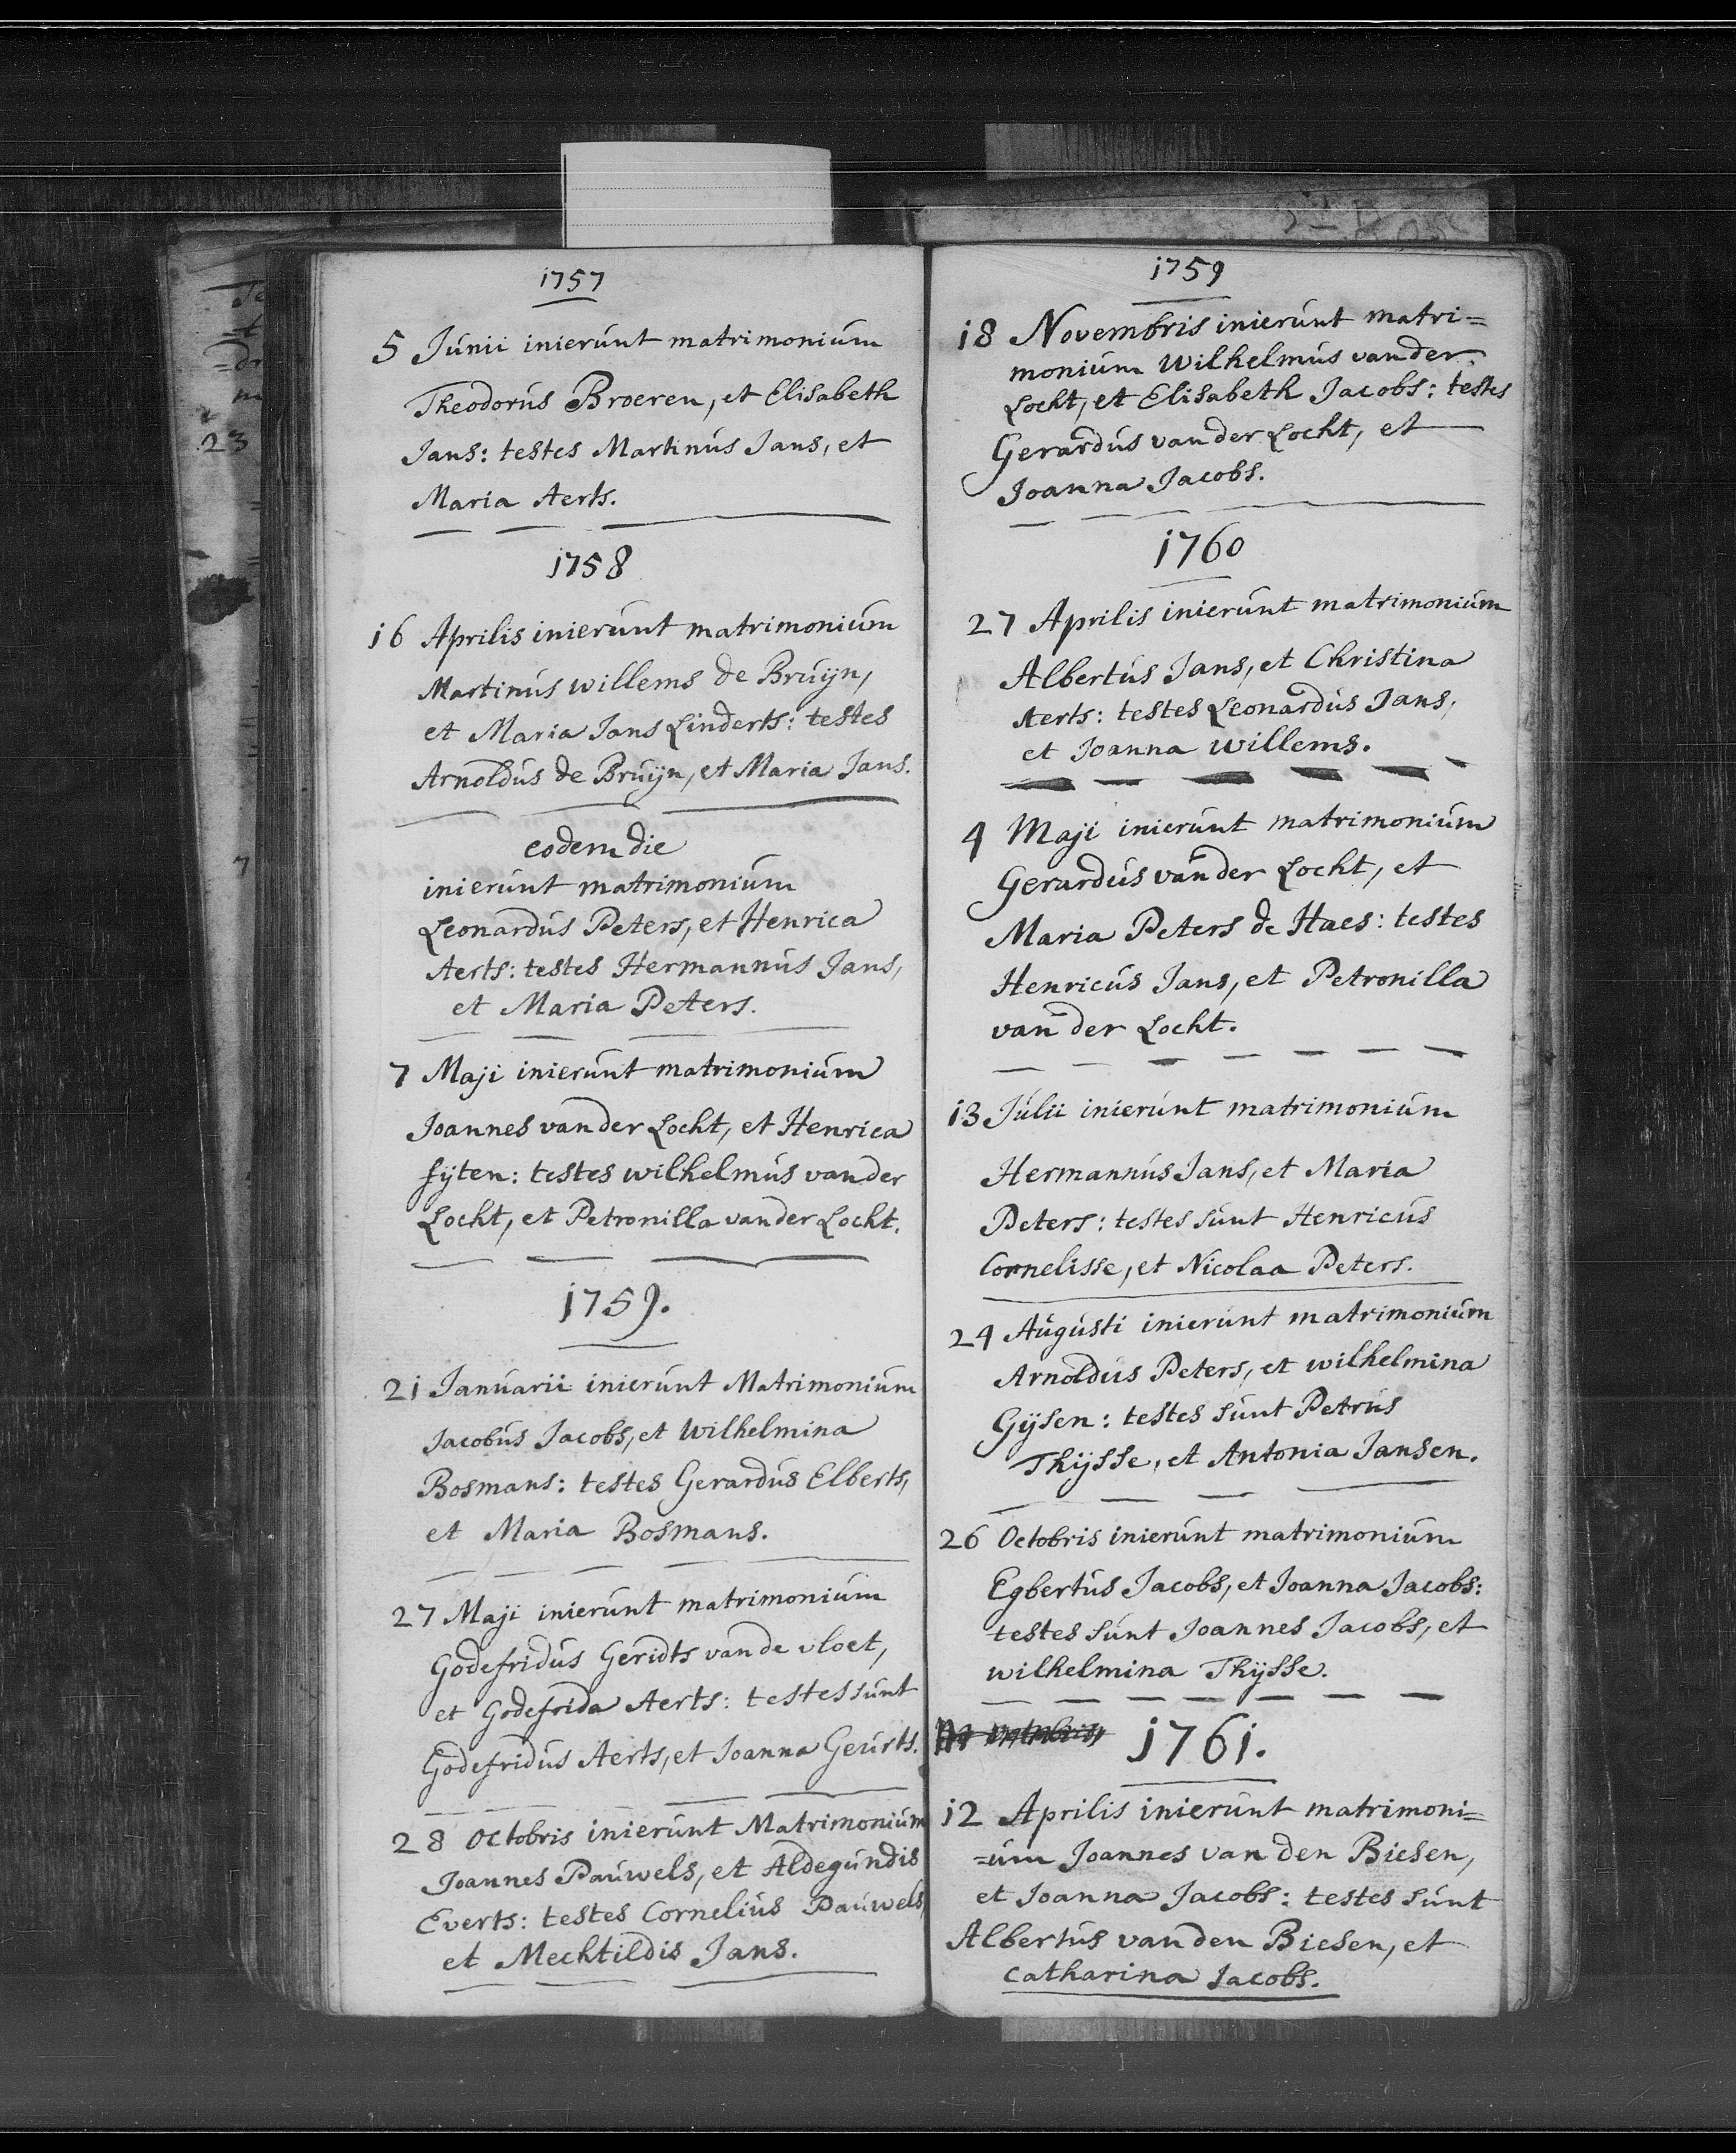 1757
5 Junii inierunt matrimonium
Theodorus Broeren, et Elisabeth
Jans: testes Martinus Jans, et
Maria Aerts.
1758
16 Aprilis inierunt matrimonium
Martinus willems de Bruijn,
et Maria Jans Linderts: testes
Arnoldus de Bruijn, et Maria Jans.
eodem die
inierunt matrimonium
Leonardus Peters, et Henrica
Aerts: testes Hermannus Jans,
et Maria Peters.
7 Maji inierunt matrimonium
Joannes van der Locht, et Henrica
fijten: testes wilhelmus van der
Locht, et Petronilla van der Locht.
1759.
21 Januarii inierunt Matrimonium
Jacobus Jacobs, et Wilhelmina
Bosmans: testes Gerardus Elberts,
et Maria Bosmans.
27 Maji inierunt matrimonium
Godefridus Geridts van de vloet,
et Godefrida Aerts: testes sunt
Godefridus Aerts, et Joanna Geurts.
28 Octobris inierunt Matrimonium
Joannes Pauwels, et Aldegundis
Everts: testes Cornelius Pauwels,
et Mechtildis Jans.
1759
18 Novembris inierunt matri=
monium Wilhelmus van der
Locht, et Elisabeth Jacobs: testes
Gerardus van der Locht, et
Joanna Jacobs.
1760
27 Aprilis inierunt matrimonium
Albertus Jans, et Christina
Aerts: testes Leonardus Jans,
et Joanna willems.
4 Maji inierunt matrimonium
Gerardus van der Locht, et
Maria Peters de Haes: testes
Henricus Jans, et Petronilla
van der Locht.
13 Julii inierunt matrimonium
Hermannus Jans, et Maria
Peters: testes sunt Henricus
Cornelisse, et Nicolaa Peters.
24 Augusti inierunt matrimonium
Arnoldus Peters, et wilhelmina
Gijsen: testes sunt Petrus
Thijsse, et Antonia Jansen.
26 Octobris inierunt matrimonium
Egbertus Jacobs, et Joanna Jacobs:
testes sunt Joannes Jacobs, et
wilhelmina Thijsse.
1761.
12 Aprilis inierunt matrimoni=
=um Joannes van den Biesen,
et Joanna Jacobs: testes sunt
Albertus van den Biesen, et
catharina Jacobs.